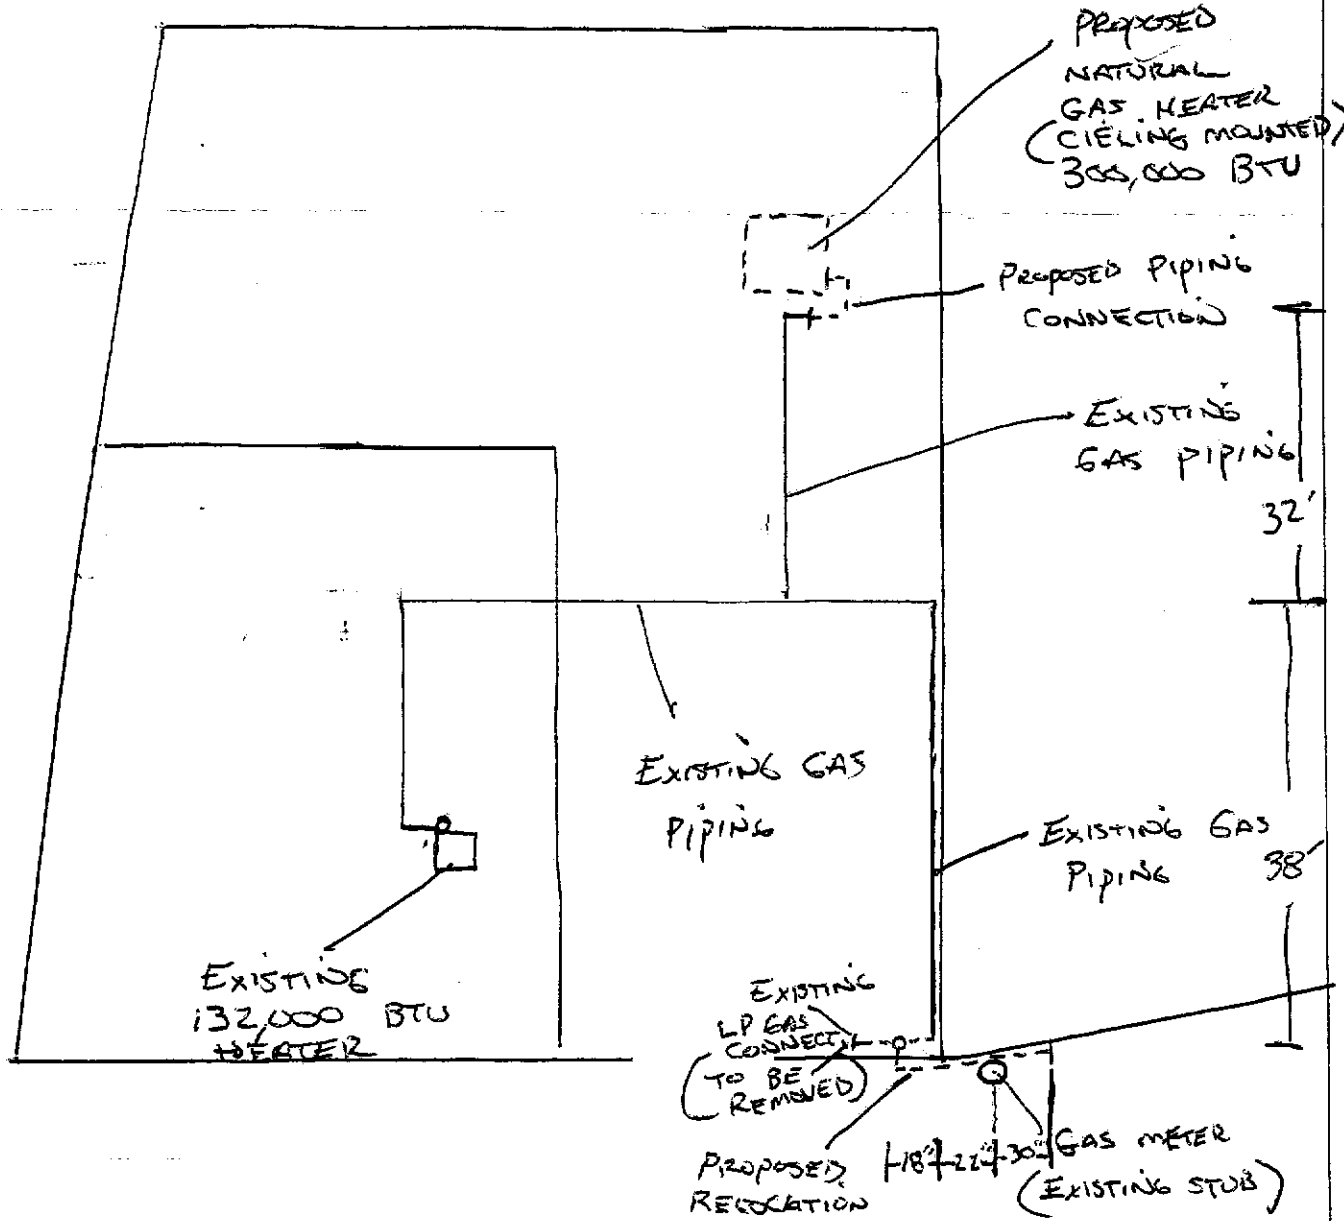 PROPOSED
NATURAL
GAS HEATER
(CIELING MOUNTED)
300,000 BTU
PROPOSED PIPING
CONNECTION
EXISTING
GAS PIPING
32'
EXISTING GAS
PIPING
EXISTING GAS
PIPING
38'
EXISTING
132,000 BTU
HEATER
EXISTING
LP GAS
CONNECT.
(TO BE
REMOVED)
PROPOSED
RELOCATION
18" 22" 30"
GAS METER
(EXISTING STUB)